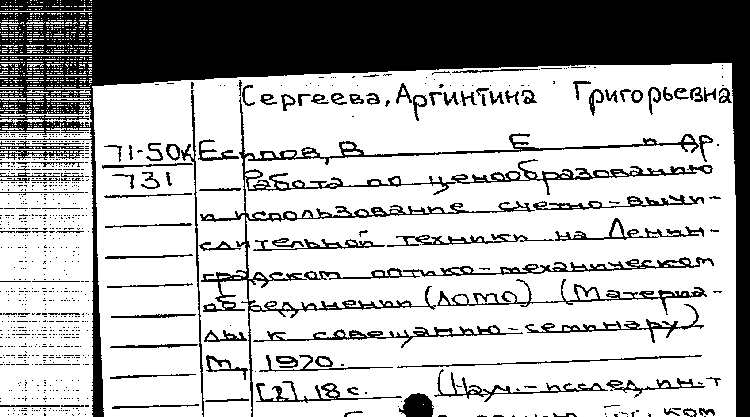 Сергеева, Аргинтина Григорьевна
71-50к Есипов, В Е и др.
731 Работа по ценообразованию
и использование счетно-вычи-
слительной техники на Ленин-
градском оптико-механическом
объединении (ЛОМО) (Материа-
лы к совещанию-семинару)
М., 1970.
[2], 18 с. (Науч.-исслед. ин-т
ком